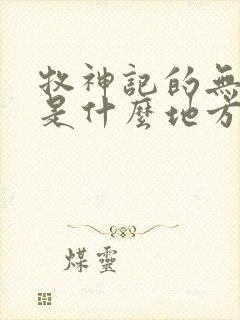 牧神記的無
是什麼地方
煤靈